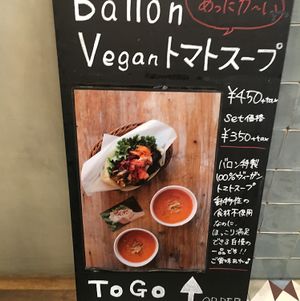 Ballon
めっにカ〜い！
Vegan トマトスープ
¥450+tax
Set価格
¥350+tax
バロン特製
100%ヴィーガン
トマトスープ
動物性の
食材不使用
なのに、
ほっこり満足
できる自慢の
一品です!!
ご賞味あれ♪
To Go
ORDER